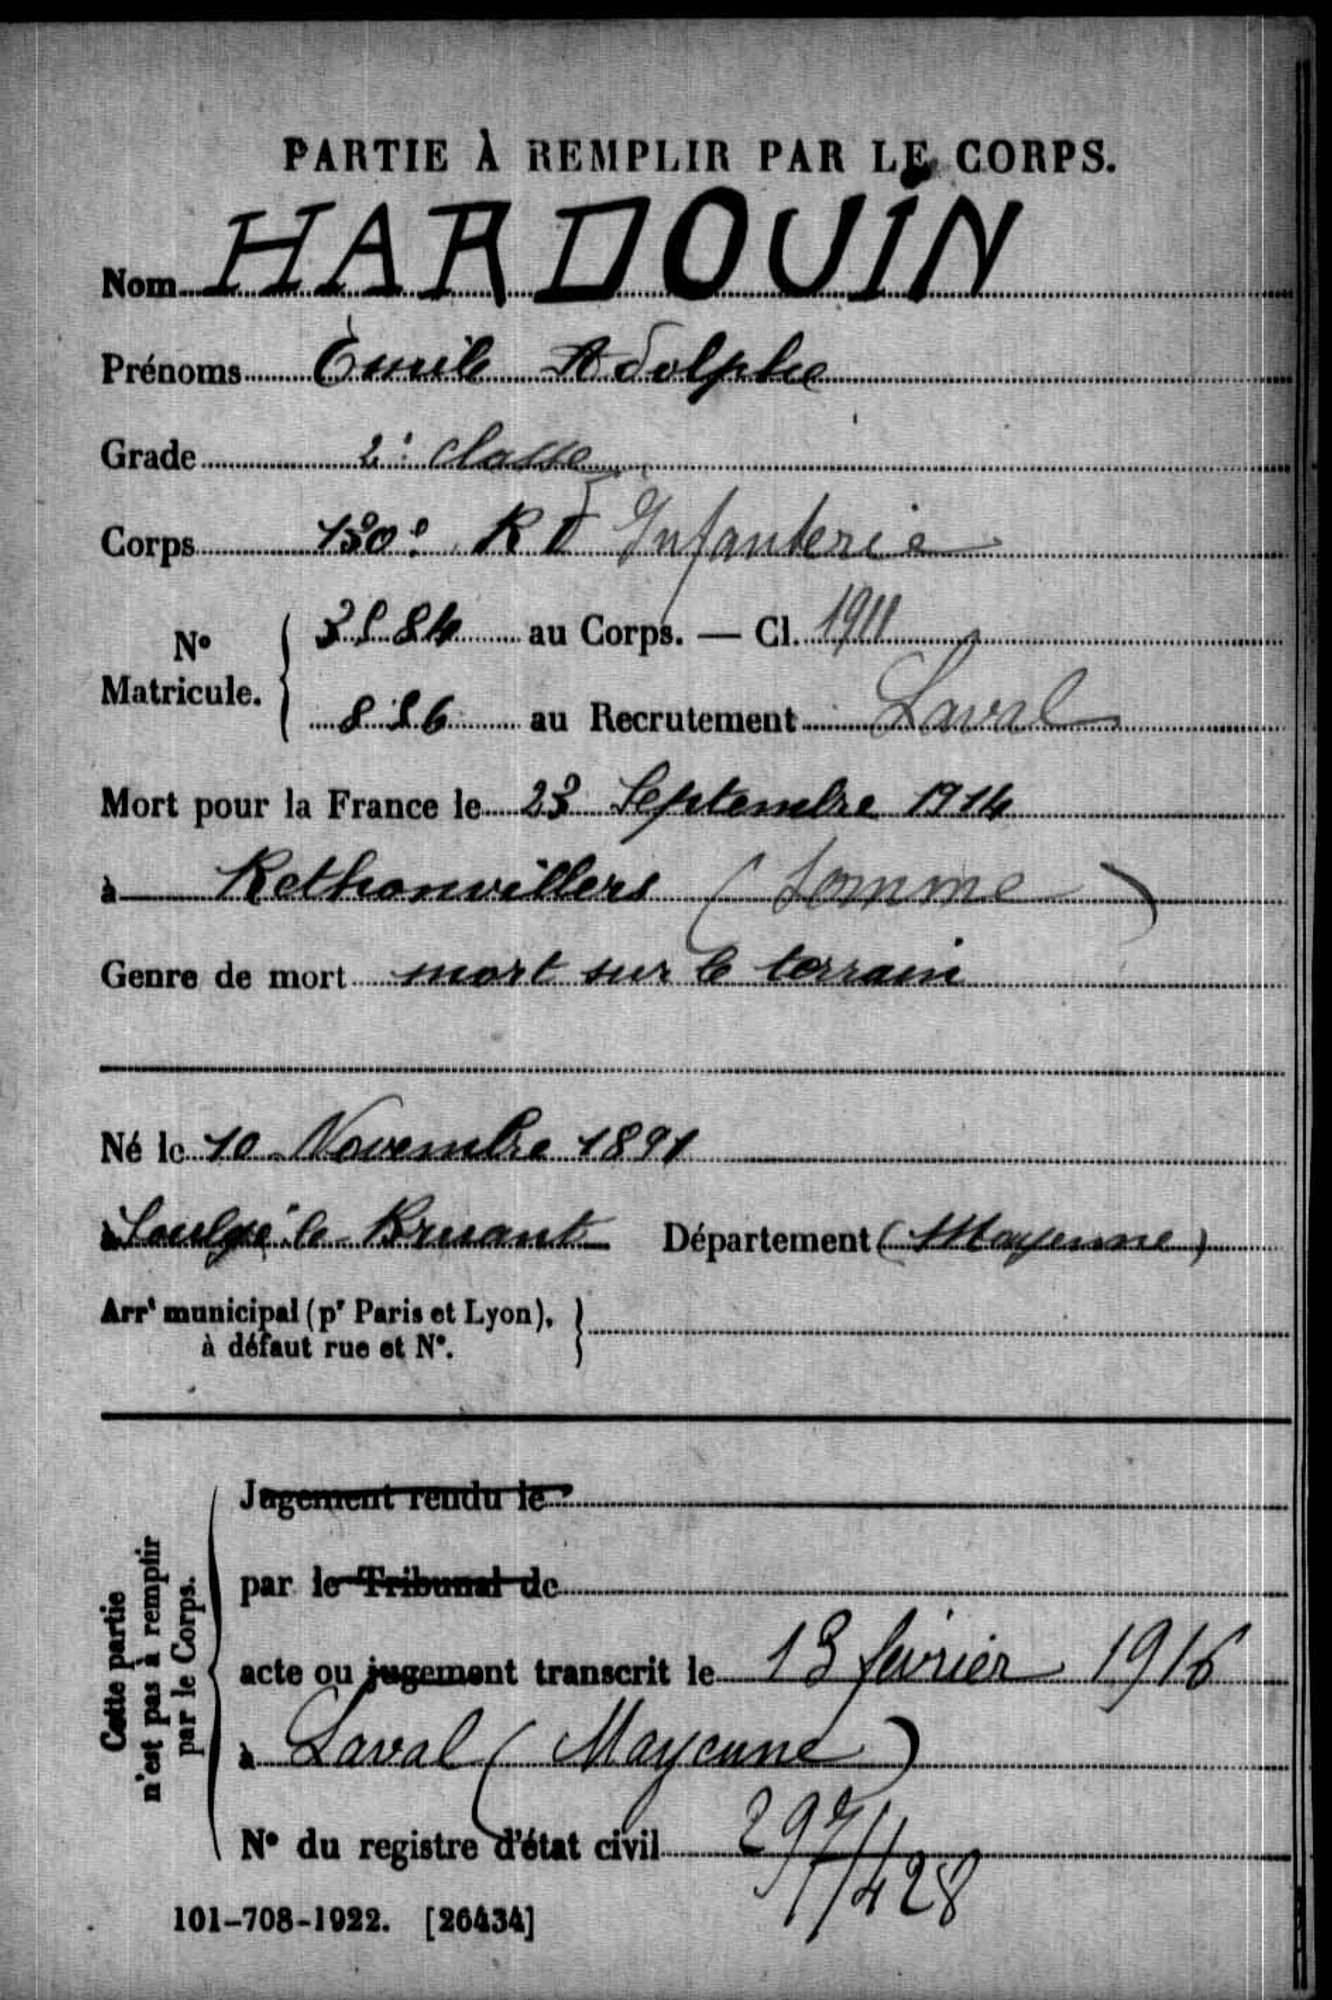 PARTIE À REMPLIR PAR LE CORPS.
Nom HARDOUIN
Prénoms Émile Adolphe
Grade 2e classe
Corps 130e R d'Infanterie
No Matricule. { au Corps. — Cl. 1911
au Recrutement Laval
Mort pour la France le 23 Septembre 1914
à Rethonvillers (Somme)
Genre de mort mort sur le terrain
Né le 10 Novembre 1891
à Soulgé le Bruant Département (Mayenne)
Arrt municipal (pr Paris et Lyon), }
à défaut rue et No.
Cette partie
n'est pas à remplir
par le Corps.
Jugement rendu le
par le Tribunal de
acte ou jugement transcrit le 13 février 1916
à Laval (Mayenne)
No du registre d'état civil 297/428
101-708-1922. [26434]